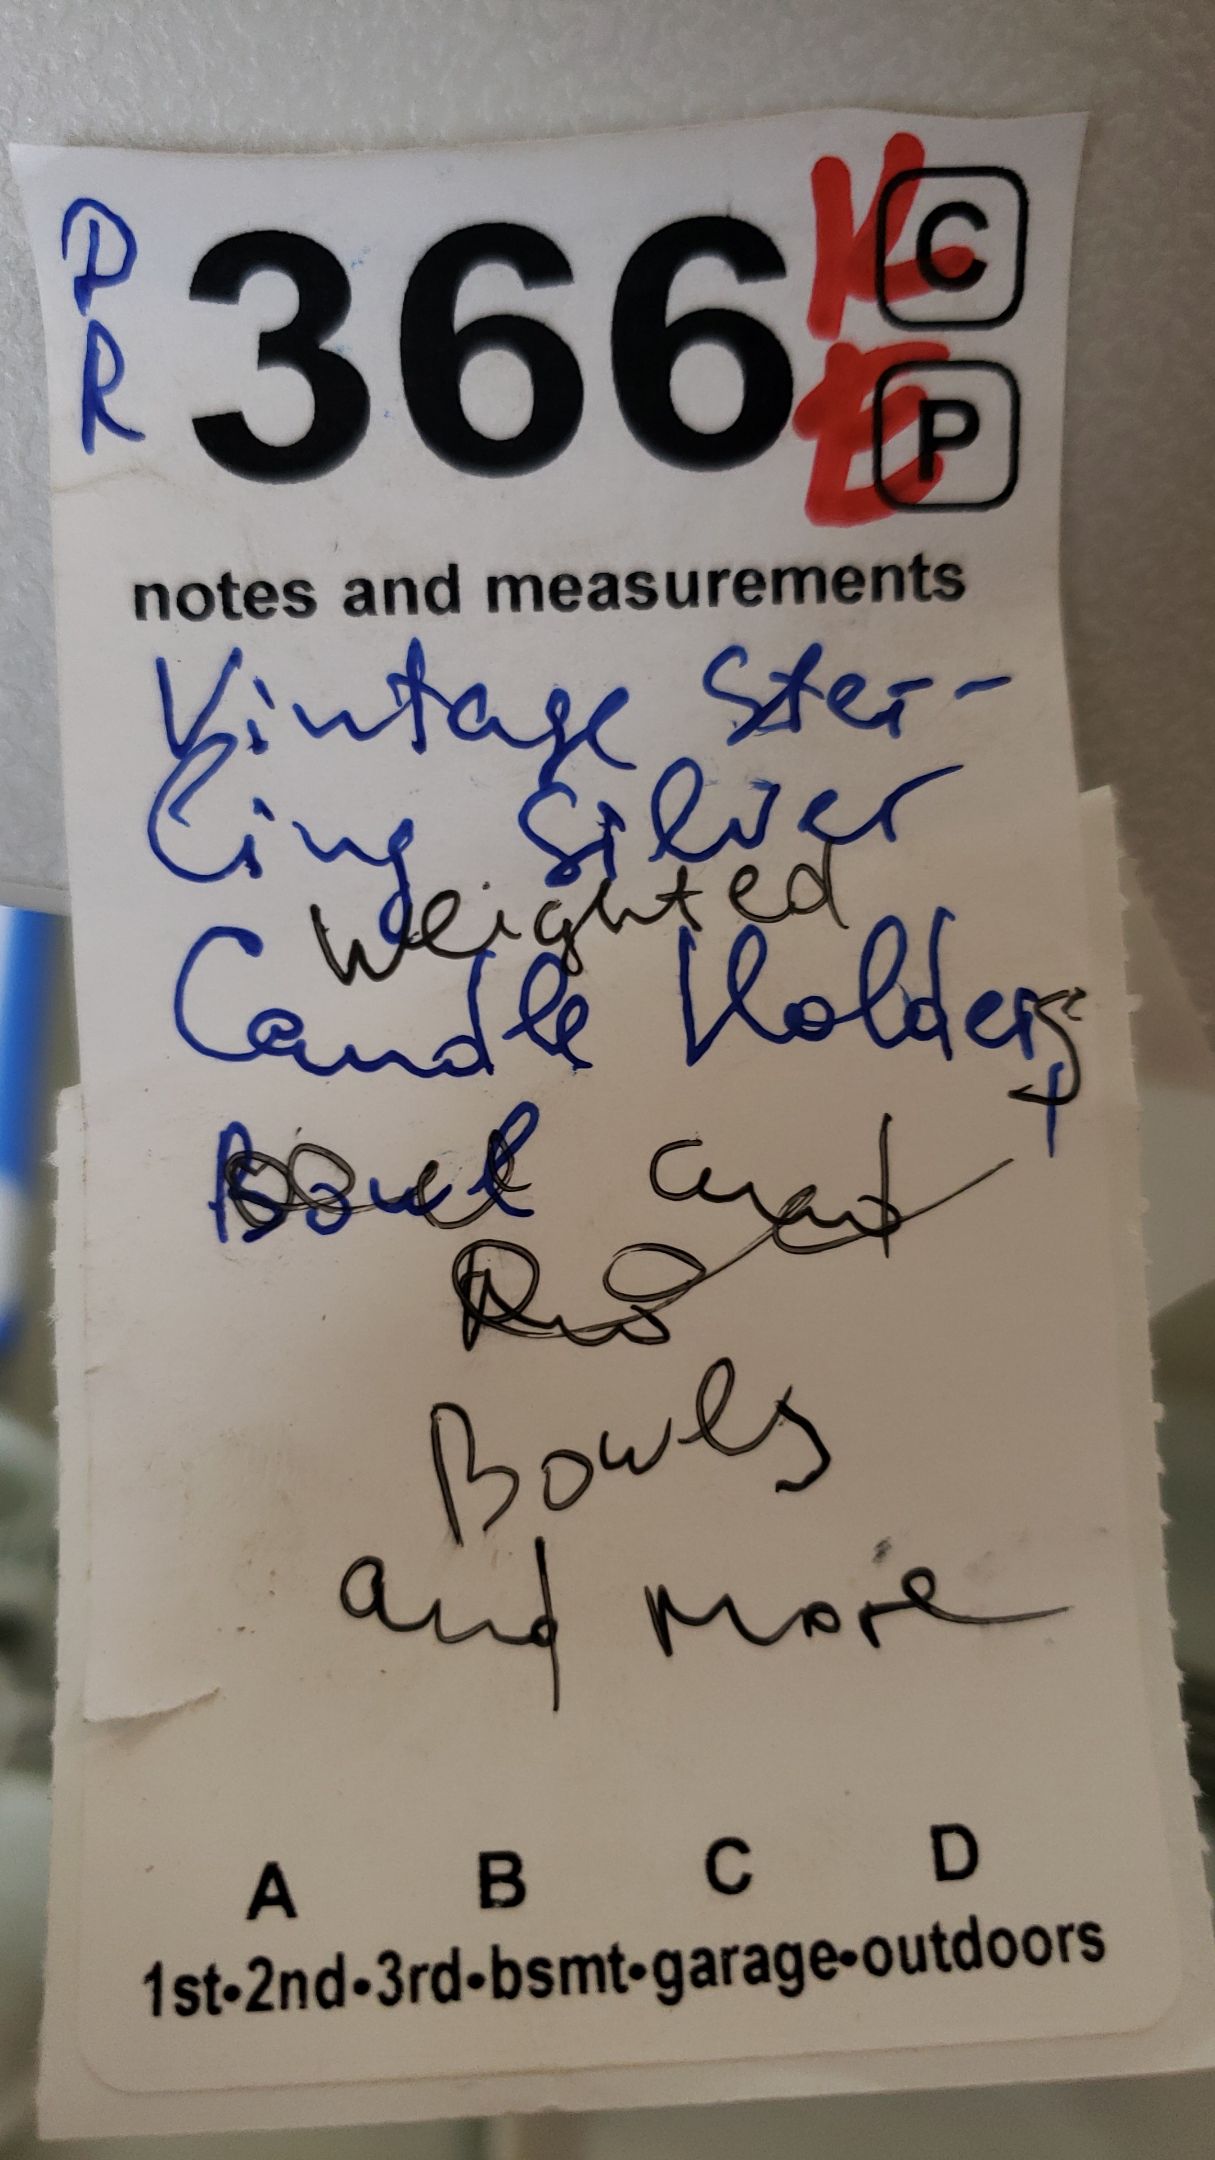 D
R
366
K
C
E
P
notes and measurements
Vintage Ster-
ling Silver
Weighted
Candle Holders
+
Bowl and
Bowls
and More
A B C D
1st•2nd•3rd•bsmt•garage•outdoors